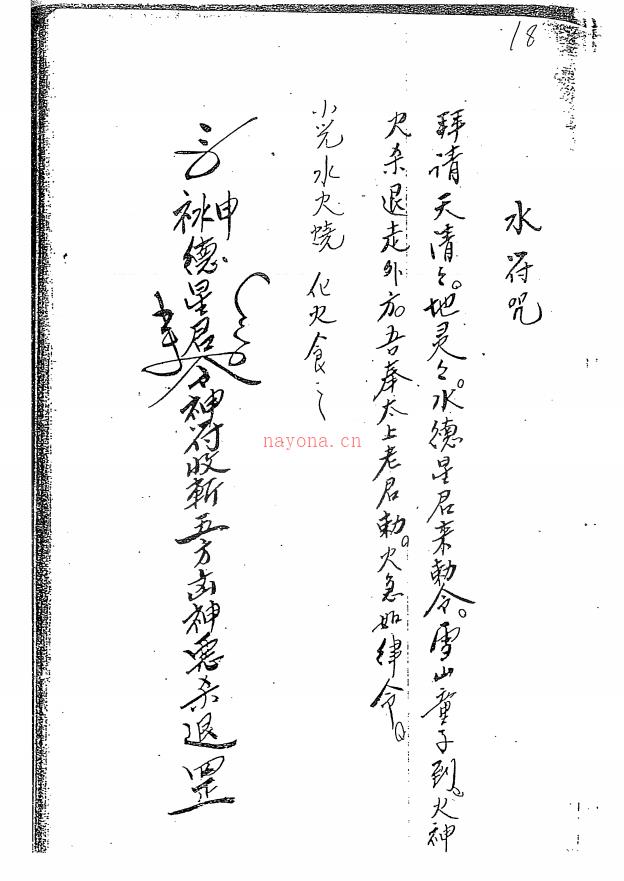 18
水符咒
拜请天清々。地灵々。水德星君来勅令。雪山童子到。火神
火杀退走外方。吾奉太上老君勅。火急如律令。
小児水火烧 化火食之
德星君 神符收斬五方凶神悪杀退罡
nayona.cn